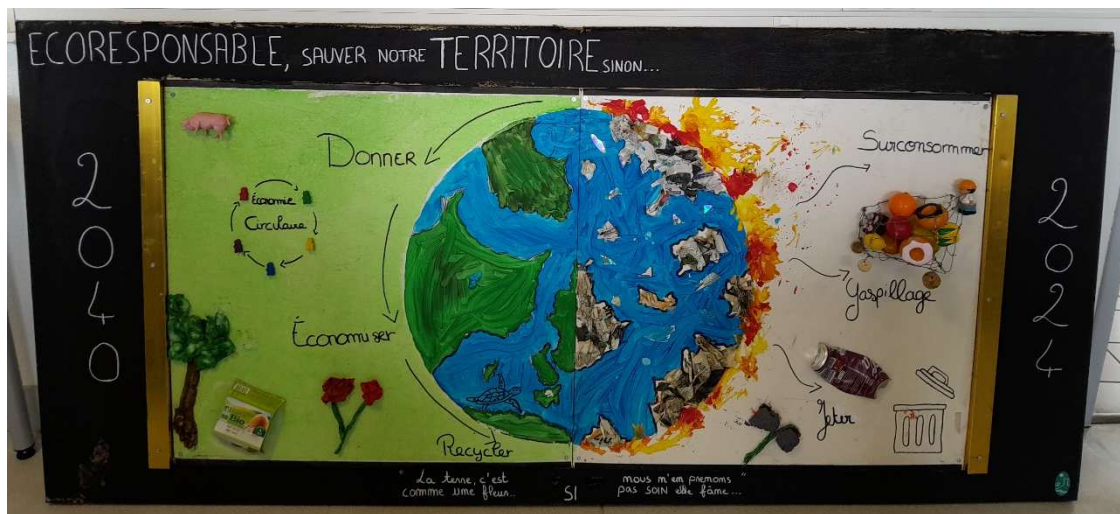 ECORESPONSABLE, SAUVER NOTRE TERRITOIRE SINON...
2040
DONNER
Économie
Circulaire
Économiser
Recycler
Bio
Surconsommer
Gaspillage
Jeter
2024
"La terre, c'est
comme une fleur...
SI
nous n'en prenons
pas SOIN elle fâne..."